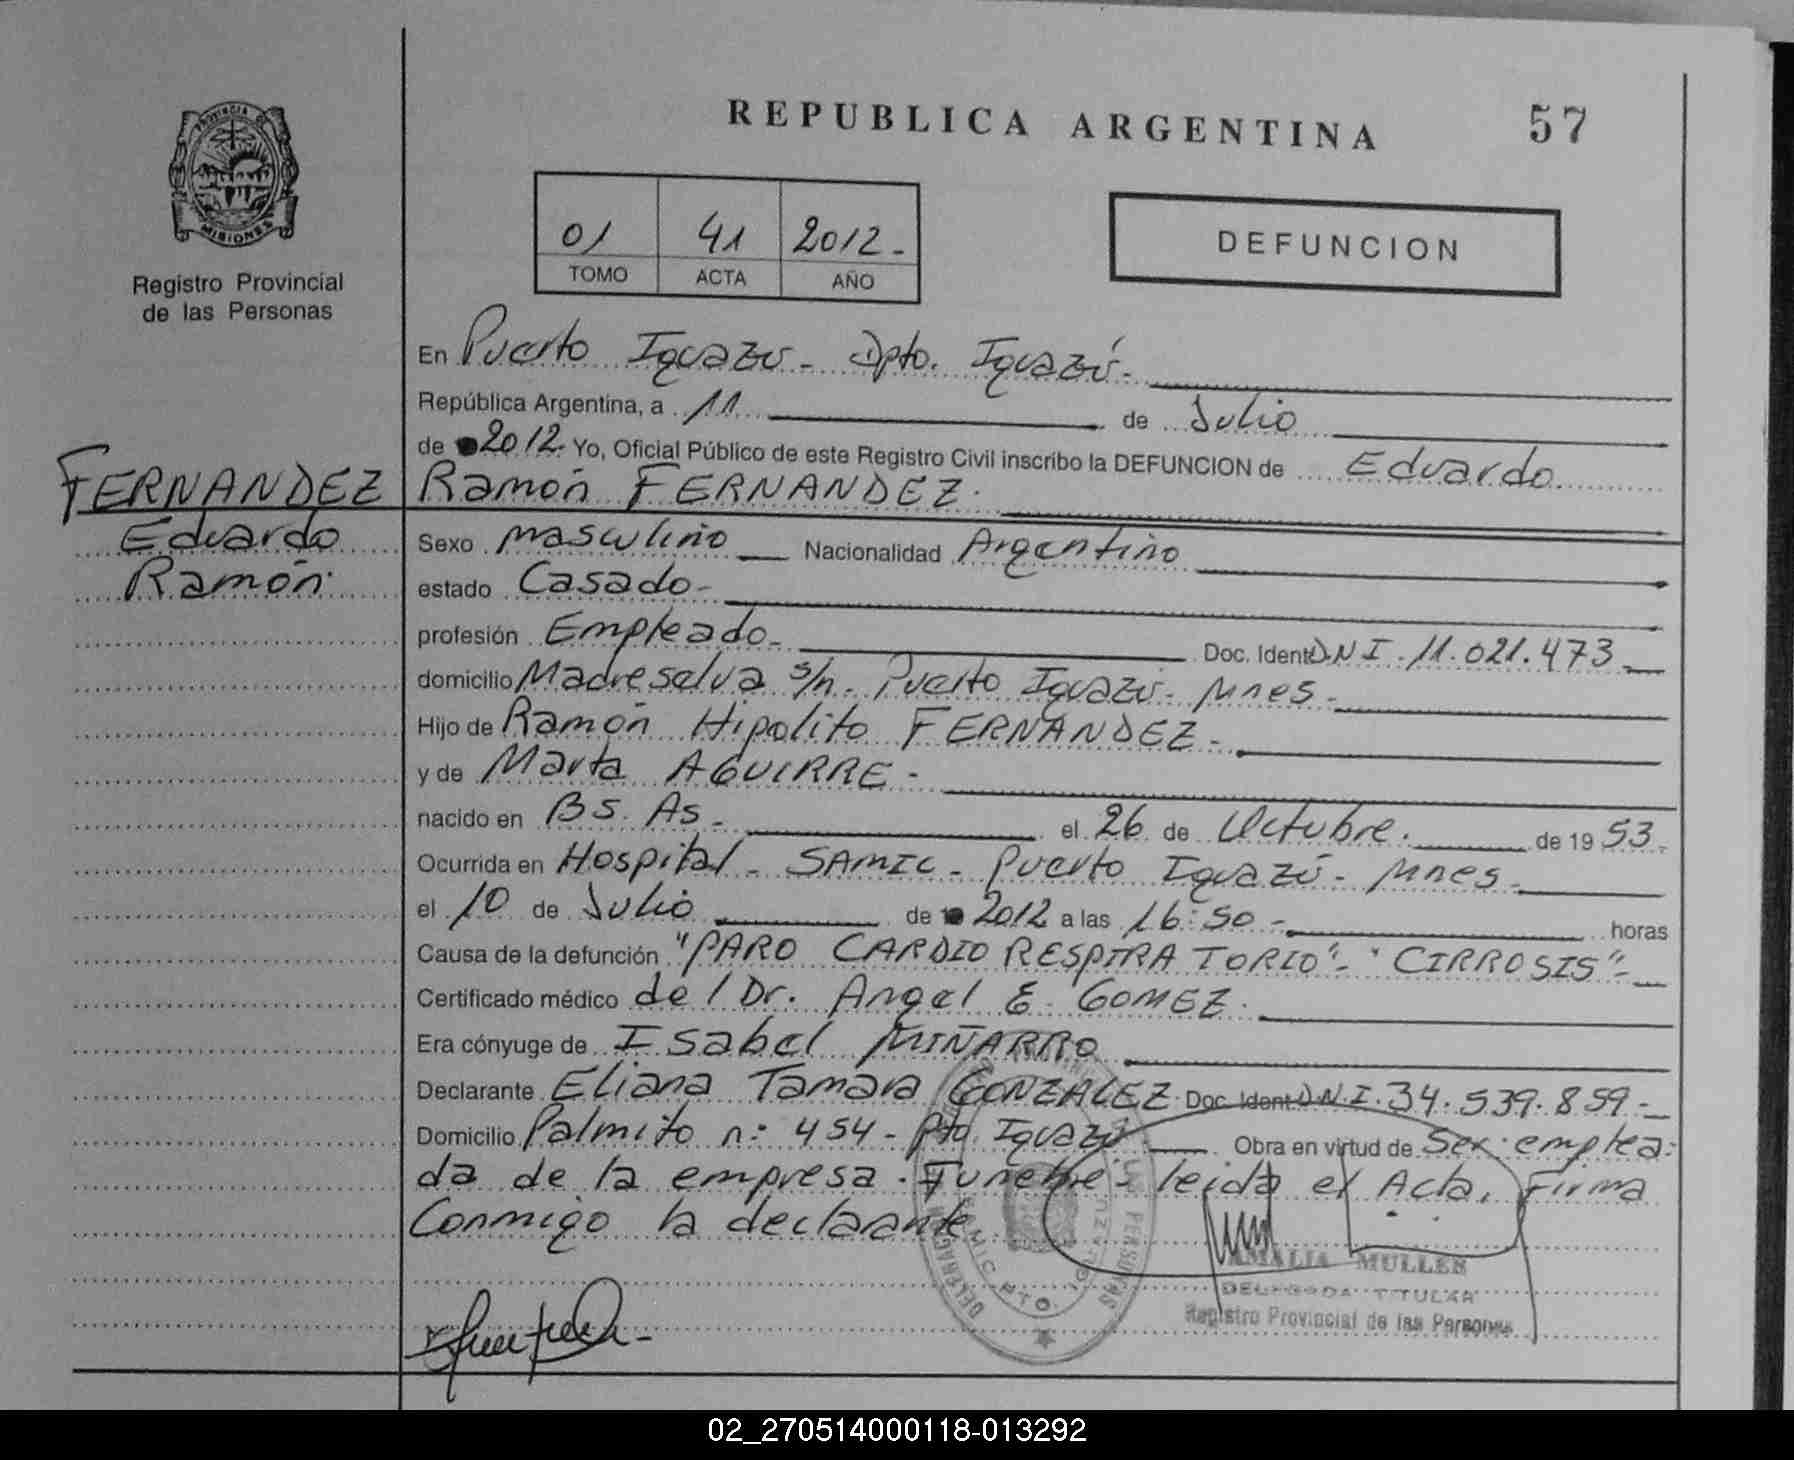 REPUBLICA ARGENTINA
57
PROVINCIA DE
MISIONES
Registro Provincial
de las Personas
01 41 2012.-
TOMO ACTA AÑO
DEFUNCION
En Puerto Iguazú - Dpto. Iguazú.-
República Argentina, a 11 de Julio
de 2012. Yo, Oficial Público de este Registro Civil inscribo la DEFUNCION de Eduardo
Ramón FERNANDEZ.
FERNANDEZ
Eduardo
Ramón.
Sexo masculino Nacionalidad Argentino
estado Casado-
profesión Empleado- Doc. Ident. D.N.I. 11.021.473
domicilio Madreselva s/n. Puerto Iguazú- Mnes-
Hijo de Ramón Hipolito FERNANDEZ-
y de Marta AGUIRRE-
nacido en BS. As- el 26 de Octubre. de 19 53.
Ocurrida en Hospital - SAMIC - Puerto Iguazú - Mnes-
el 10 de Julio de 2012 a las 16:50- horas
Causa de la defunción "PARO CARDIO RESPIRATORIO"- "CIRROSIS"-
Certificado médico del Dr. Angel E. GOMEZ.
Era cónyuge de Isabel MIÑARRO
Declarante Eliana Tamara GONZALEZ Doc. Ident. D.N.I. 34.539.859-
Domicilio Palmito n: 454- Pto. Iguazú Obra en virtud de Ser emplea-
da de la empresa. Funebre- leida el Acta, Firma
Conmigo la declarante
AMALIA MULLER
DELEGADA TITULAR
Registro Provincial de las Personas
02_270514000118-013292